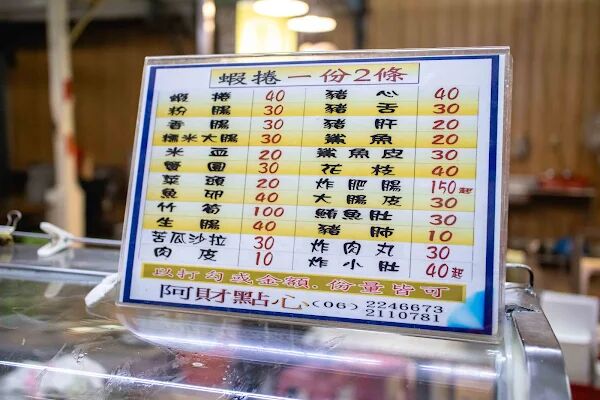 蝦捲一份2條
蝦捲 40 豬心 40
粉腸 30 豬舌 30
香腸 30 豬肝 20
糯米大腸 30 鯊魚 20
米血 20 鯊魚皮 30
蟹圓 30 花枝 40
菜頭 20 炸肥腸 150起
魚卵 40 大腸皮 30
竹筍 100 鮪魚肚 30
生腸 40 豬肺 30
苦瓜沙拉 30 炸肉丸 30
肉皮 10 炸小肚 40起
以打勾或金額.份量皆可
阿財點心(06) 2246673
2110781